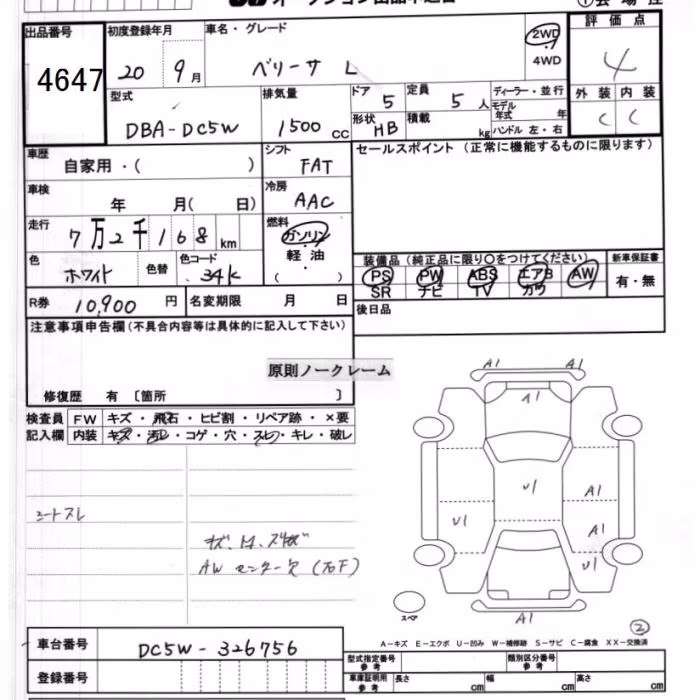 オークション出品申込書
出品番号 初度登録年月 車名・グレード 評価点
4647 20 9月 ベリーサ L 2WD 4
・
4WD
型式 排気量 ドア 定員 ディーラー・並行 外装 内装
DBA-DC5W 1500cc 5 5人 モデル年式 年 C C
形状 HB 積載 kg ハンドル 左・右
車歴 自家用・( ) シフト FAT セールスポイント(正常に機能するものに限ります)
車検 年 月( 日) 冷房 AAC
走行 7万2千168km 燃料 ガソリン・軽油・( )
色 ホワイト 色替 色コード 34K
装備品(純正品に限り〇をつけてください) 新車保証書
PS PW ABS エアB AW 有・無
SR ナビ TV カワ
R券 10,900円 名変期限 月 日 後日品
注意事項申告欄(不具合内容等は具体的に記入して下さい)
原則ノークレーム
修復歴 有 〔箇所 〕
検査員 FW キズ・飛石・ヒビ割・リペア跡・×要
記入欄 内装 キズ・汚レ・コゲ・穴・スレ・キレ・破レ
A1 A1
A1
U1 U1 A1
A1
U1
A1
シートスレ
AW センター欠(右F)
スペア
②
A-キズ E-エクボ U-凹み W-補修跡 S-サビ C-腐食 XX-交換済
車台番号 DC5W-326756
登録番号
型式指定番号 参考 類別区分番号 参考
車庫証明用 参考 長さ cm 幅 cm 高さ cm